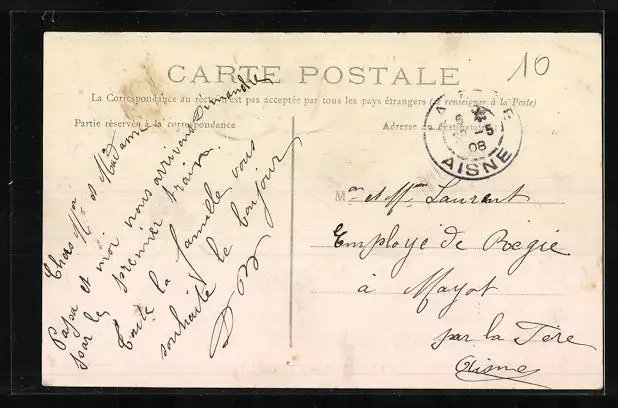 10
CARTE POSTALE
La Correspondance au recto n'est pas acceptée par tous les pays étrangers (se renseigner à la Poste)
Partie réservée à la correspondance
Adresse du destinataire
Chers Mr et Madame
Papa et moi nous arrivons Dimanche
par le premier train.
Toute la famille vous
souhaite le bonjour
-5
08
AISNE
et Laurent
Employé de Régie
à Mayot
par la Fère
Aisne